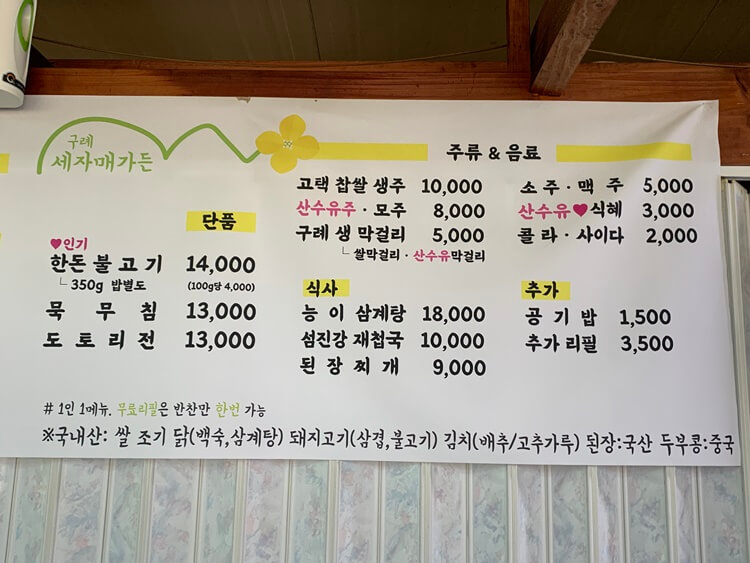 구례
세자매가든
단품
♥인기
한돈 불고기 14,000
└ 350g 밥별도 (100g당 4,000)
묵 무 침 13,000
도 토 리 전 13,000
주류 & 음료
고택 찹쌀 생주 10,000
산수유주 · 모주 8,000
구례 생 막걸리 5,000
└ 쌀막걸리 · 산수유막걸리
소 주 · 맥 주 5,000
산수유♥식혜 3,000
콜 라 · 사이다 2,000
식사
능 이 삼계탕 18,000
섬진강 재첩국 10,000
된 장 찌 개 9,000
추가
공 기 밥 1,500
추가 리필 3,500
# 1인 1메뉴, 무료리필은 반찬만 한번 가능
※국내산: 쌀 조기 닭(백숙,삼계탕) 돼지고기(삼겹,불고기) 김치(배추/고추가루) 된장:국산 두부콩:중국